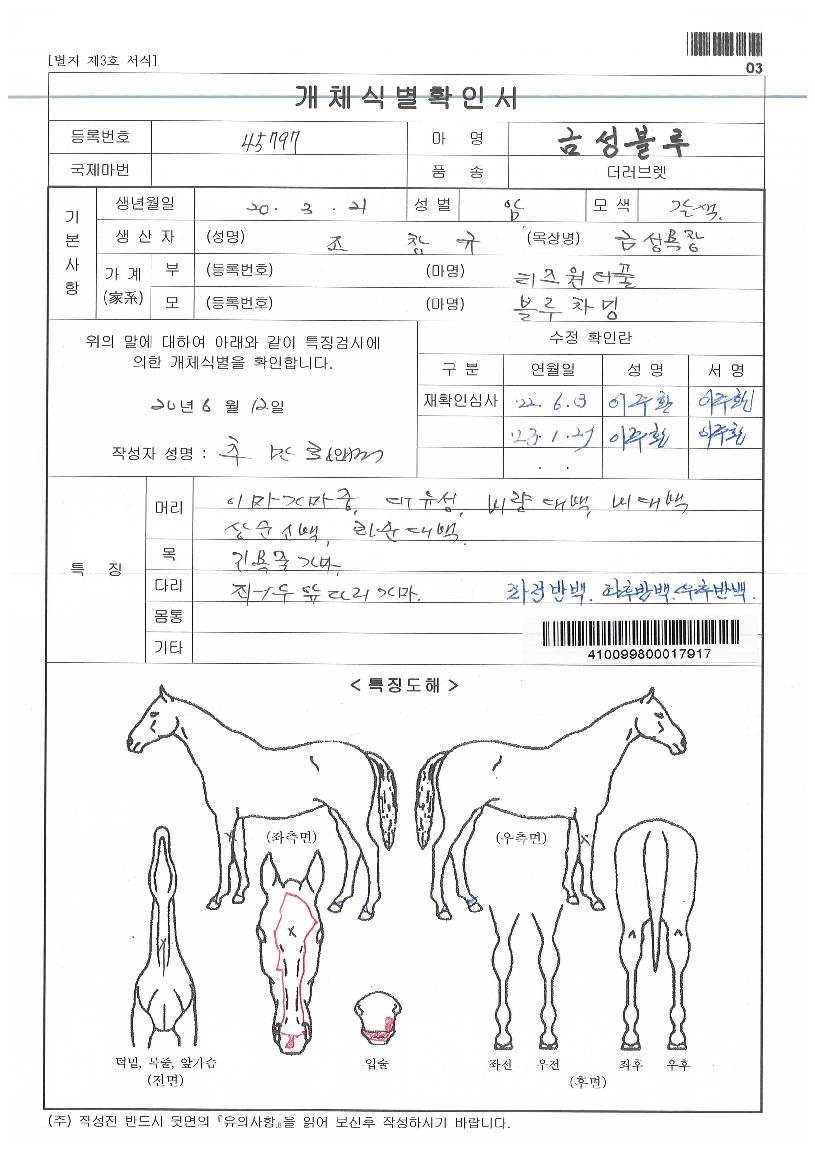 [별지 제3호 서식]
03
개체식별확인서
등록번호 45797 마 명 금성블루
국제마번 품 종 더러브렛
기본사항
생년월일 20. 3. 21 성별 암 모색 갈색.
생산자 (성명) 조 창 규 (목장명) 금성목장
가계 (家系) 부 (등록번호) (마명) 티즈원더풀
모 (등록번호) (마명) 블루차밍
위의 말에 대하여 아래와 같이 특징검사에
의한 개체식별을 확인합니다.
20년 6월 12일
작성자 성명 : 추
수정 확인란
구분 연월일 성명 서명
재확인심사 '22. 6. 13 이주환 이주환
'23. 1. 27 이주환 이주환
. .
특 징
머리 이마가마중, 대유성, 비량대백, 비대백
상순소백, 하순대백.
목
다리 좌전반백. 좌후반백. 우후반백.
몸통
기타
410099800017917
< 특징도해 >
(좌측면)
(우측면)
턱밑, 목줄, 앞가슴
(전면)
입술
좌전 우전 좌후 우후
(후면)
(주) 작성전 반드시 뒷면의 『유의사항』을 읽어 보신후 작성하시기 바랍니다.